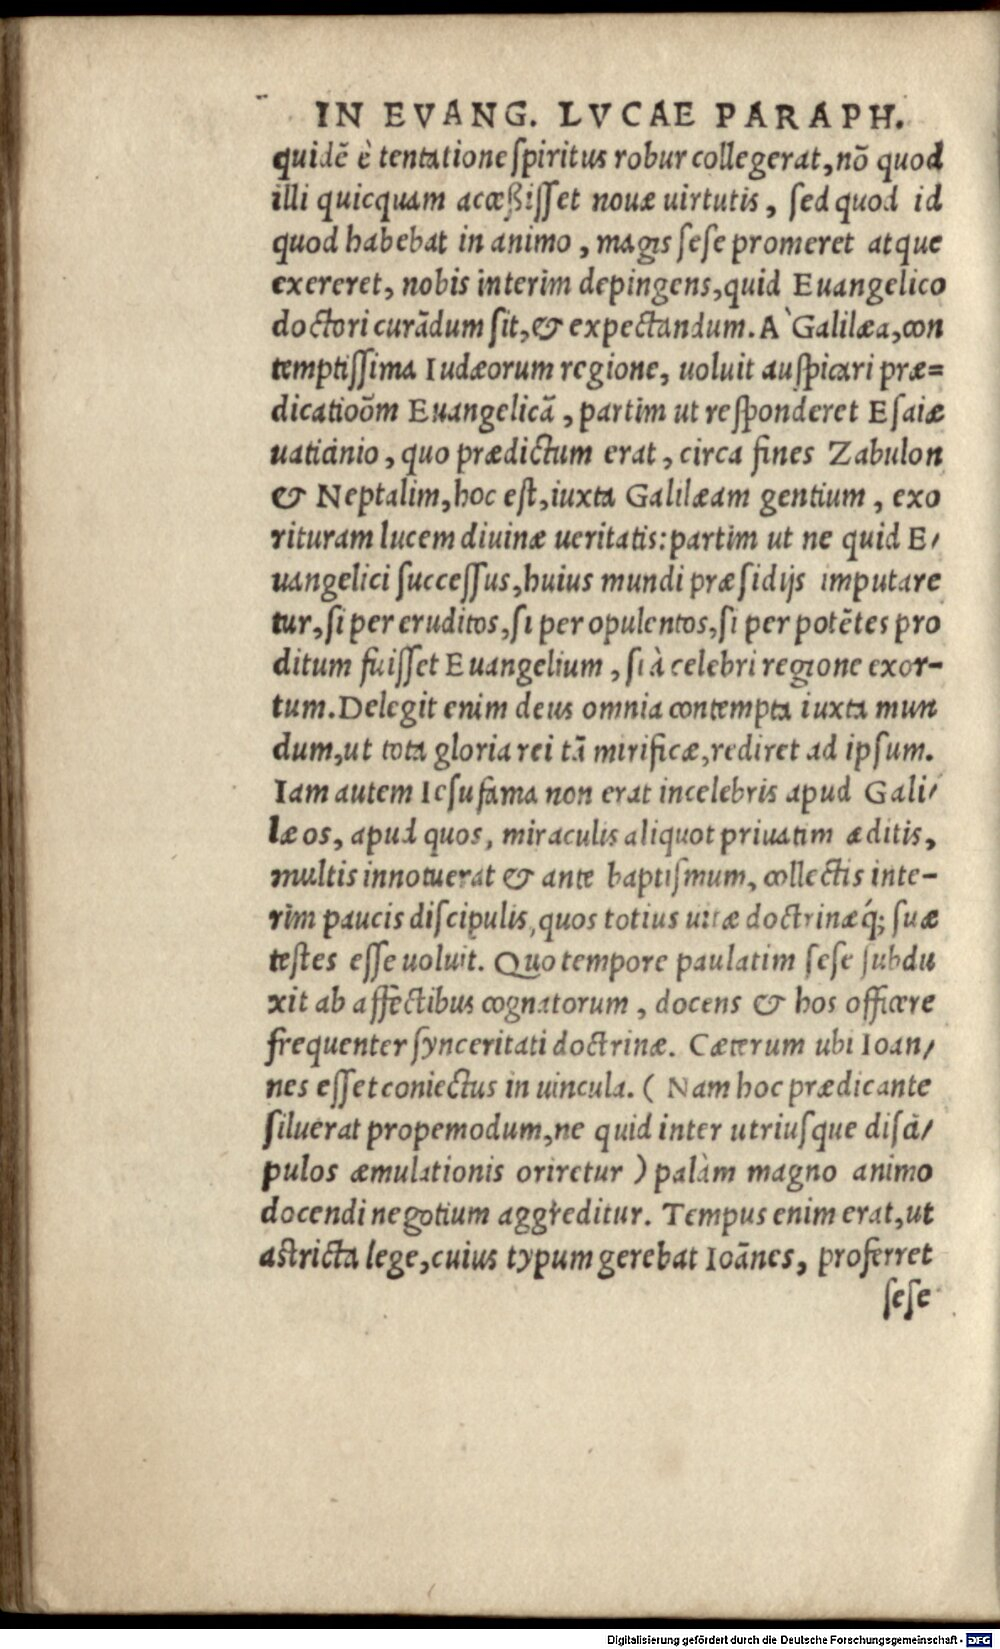 IN EVANG. LVCAE PARAPH.
quidē è tentatione spiritus robur collegerat, nō quod
illi quicquam accessisset nouæ uirtutis, sed quod id
quod habebat in animo, magis sese promeret atque
exereret, nobis interim depingens, quid Euangelico
doctori curādum sit, & expectandum. A` Galilæa, con
temptissima Iudæorum regione, uoluit auspicari præ=
dicationem Euangelicā, partim ut responderet Esaiæ
uaticinio, quo prædictum erat, circa fines Zabulon
& Neptalim, hoc est, iuxta Galilæam gentium, exo
rituram lucem diuinæ ueritatis: partim ut ne quid E/
uangelici successus, huius mundi præsidijs imputare
tur, si per eruditos, si per opulentos, si per potētes pro
ditum fuisset Euangelium, si à celebri regione exor-
tum. Delegit enim deus omnia contempta iuxta mun
dum, ut tota gloria rei tā mirificæ, rediret ad ipsum.
Iam autem Iesu fama non erat incelebris apud Gali/
læos, apud quos, miraculis aliquot priuatim æditis,
multis innotuerat & ante baptismum, collectis inte-
rim paucis discipulis, quos totius uitæ doctrinæq́; suæ
testes esse uoluit. Quo tempore paulatim sese subdu
xit ab affectibus cognatorum, docens & hos officere
frequenter synceritati doctrinæ. Cæterum ubi Ioan/
nes esset coniectus in uincula. ( Nam hoc prædicante
siluerat propemodum, ne quid inter utriusque disci/
pulos æmulationis oriretur ) palàm magno animo
docendi negotium aggreditur. Tempus enim erat, ut
astricta lege, cuius typum gerebat Ioānes, proferret
sese
Digitalisierung gefördert durch die Deutsche Forschungsgemeinschaft - DFG